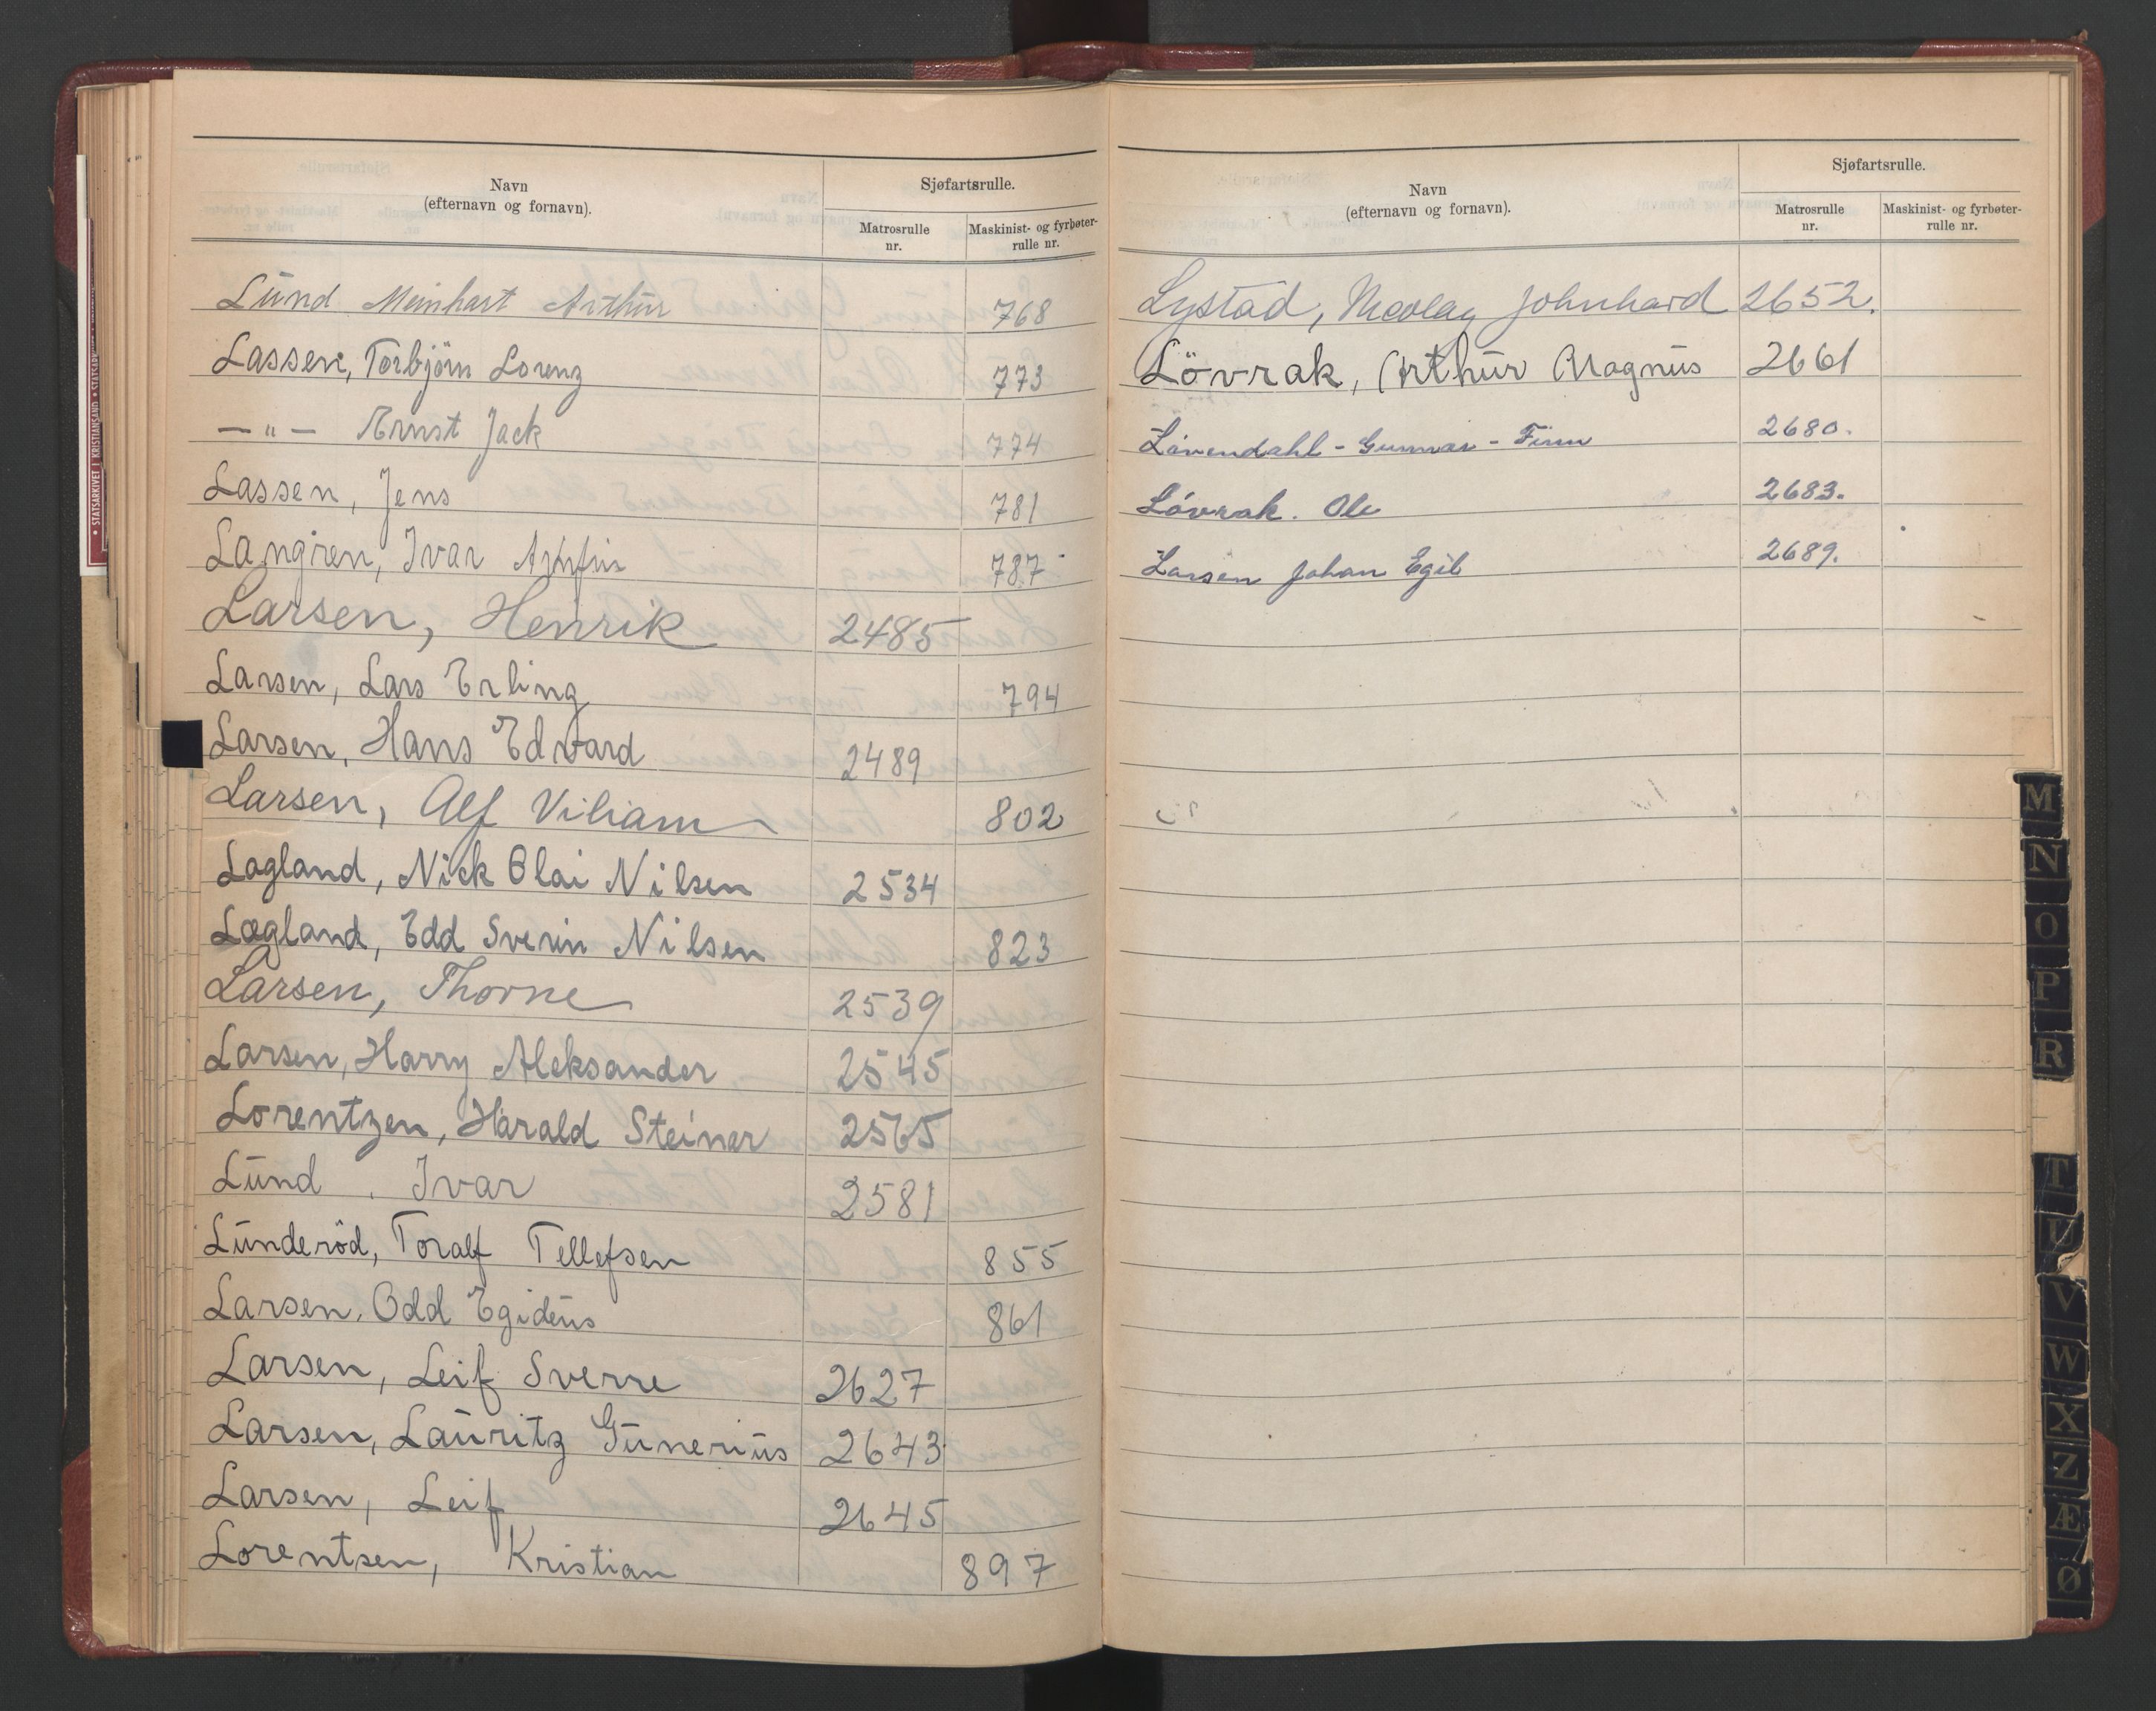 Navn
(efternavn og fornavn).
Sjøfartsrulle.
Matrosrulle nr.
Maskinist- og fyrbøter-rulle nr.
Lund Meinhart Arthur 768
Lassen, Torbjörn Lorenz 773
—"— Ernst Jack 774
Lassen, Jens 781
Langren, Ivar Arnfin 787
Larsen, Henrik 2485
Larsen, Lars Erling 794
Larsen, Hans Edvard 2489
Larsen, Alf Viliam 802
Lagland, Nick Olai Nilsen 2534
Lagland, Edd Sverin Nilsen 823
Larsen, Thorne 2539
Larsen, Harry Aleksander 2545
Lorentzen, Harald Steinar 2565
Lund, Ivar 2581
Lunderöd, Toralf Tellefsen 855
Larsen, Odd Egidius 861
Larsen, Leif Sverre 2627
Larsen, Lauritz Gunerius 2643
Larsen, Leif 2645
Lorentsen, Kristian 897
Navn
(efternavn og fornavn).
Sjøfartsrulle.
Matrosrulle nr.
Maskinist- og fyrbøter-rulle nr.
Lystad, Nicolay Johnhard 2652.
Lövrak, Arthur Magnus 2661
Lövendahl - Gunnar - Finn 2680.
Lövrak. Ole 2683.
Larsen Johan Egil 2689.
M
N
O
P
R
T
U
V
W
X
Z
Æ
Ø
STATSARKIVET I KRISTIANSAND